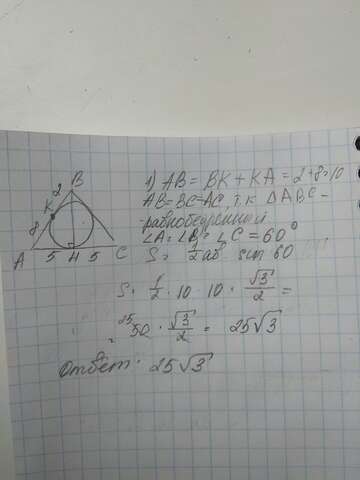 B
2
K
8
A 5 H 5 C
1) AB = BK + KA = 2+8=10
AB=BC=AC, т.к. ΔABC -
равнобедренный
∠A=∠B=∠C=60°
S= 1/2 ab · sin 60
S= 1/2 · 10 · 10 · √3/2 =
= 25 50 · √3/2 = 25√3
Ответ: 25√3